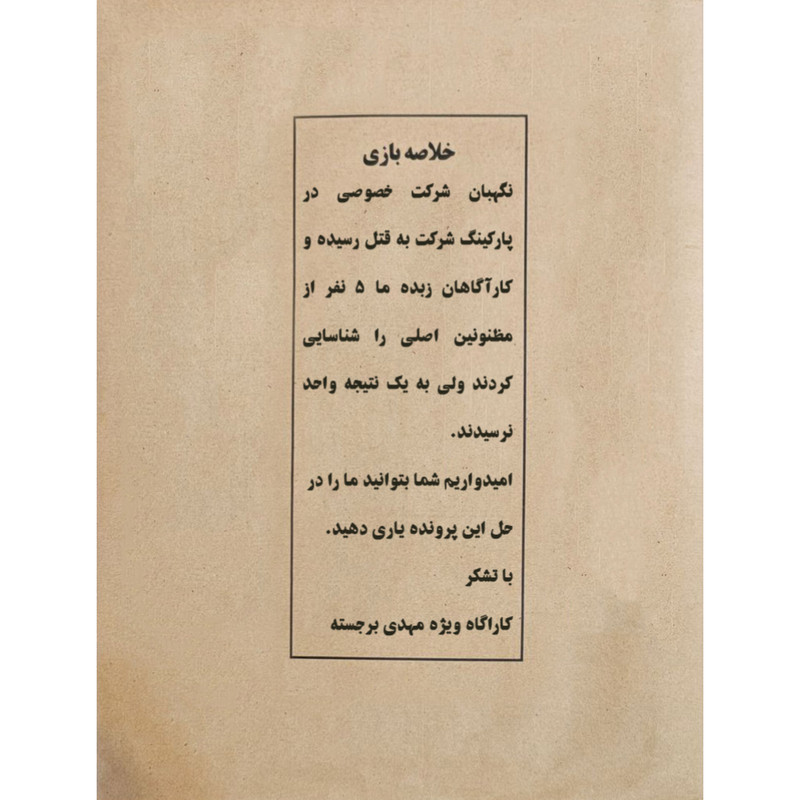 خلاصه بازی
نگهبان شرکت خصوصی در
پارکینگ شرکت به قتل رسیده و
کارآگاهان زبده ما ۵ نفر از
مظنونین اصلی را شناسایی
کردند ولی به یک نتیجه واحد
نرسیدند.
امیدواریم شما بتوانید ما را در
حل این پرونده یاری دهید.
با تشکر
کاراگاه ویژه مهدی برجسته